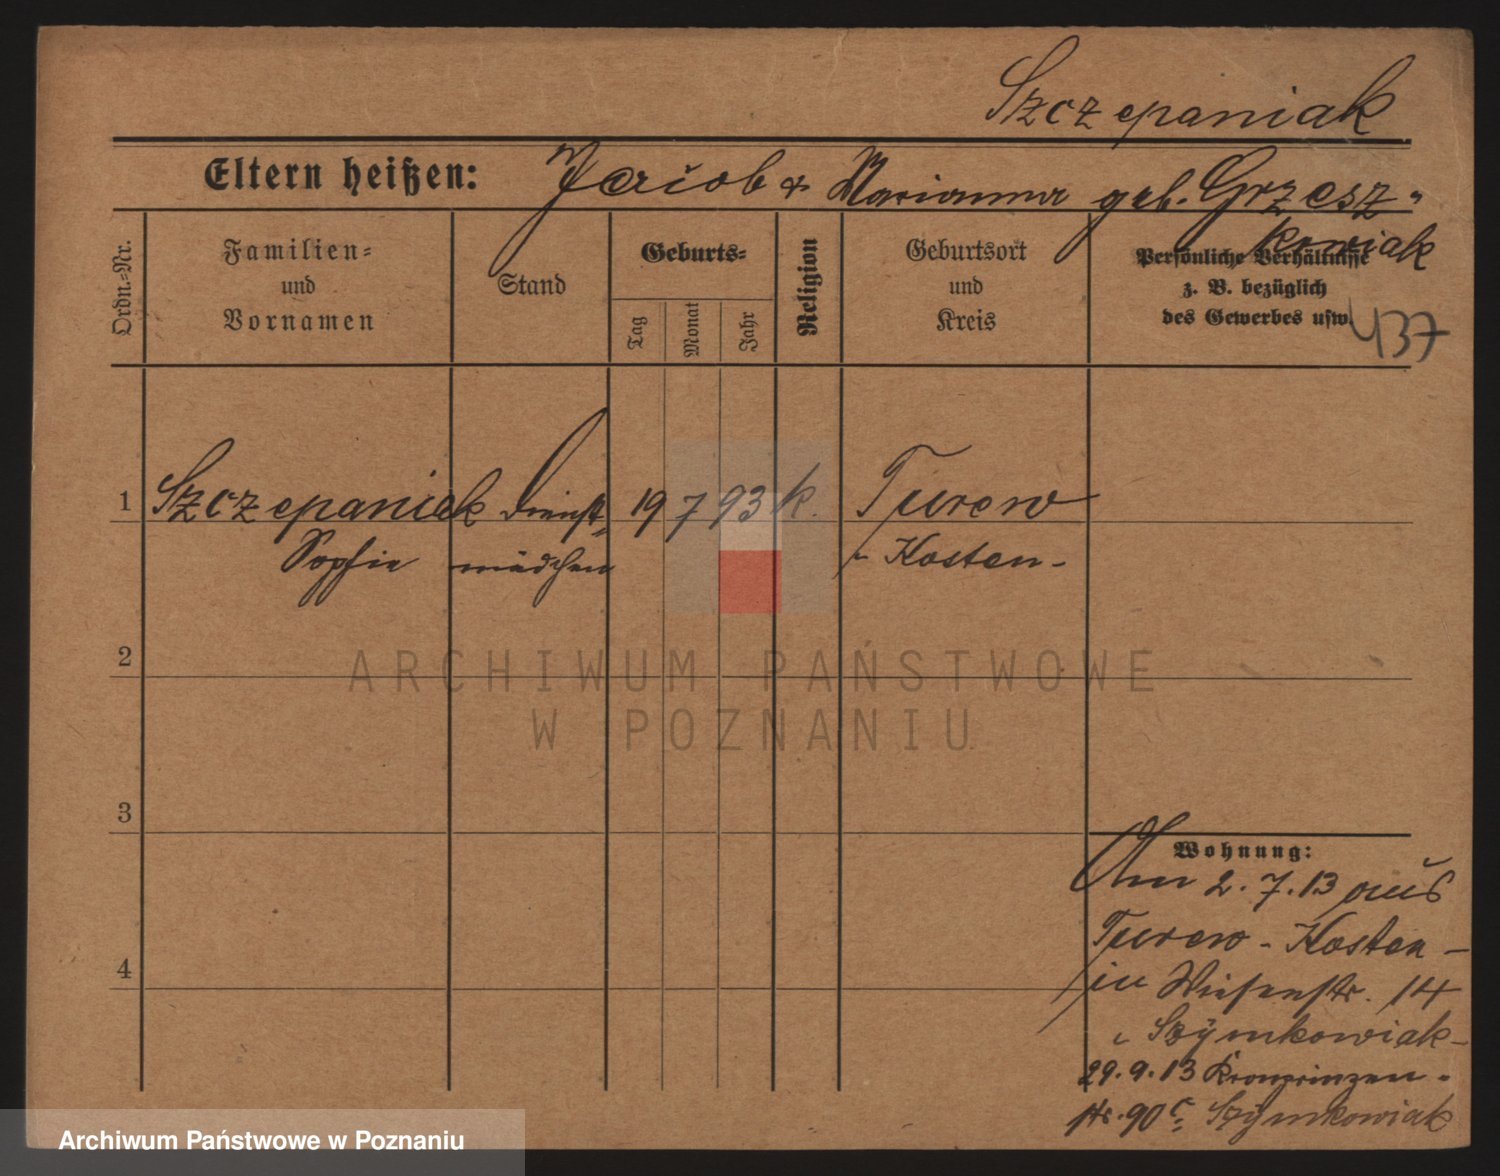 Szczepaniak
Eltern heißen: Jacob & Marianna geb. Grzesz-
kowiak
Ordn.-Nr.
Familien-
und
Vornamen
Stand
Geburts-
Tag
Monat
Jahr
Religion
Geburtsort
und
Kreis
Persönliche Verhältnisse
z. B. bezüglich
des Gewerbes usw.
437
1 Szczepaniak Dienst- 19 7 93 k. Turew
Sopfie mädchen - Kosten -
2
ARCHIWUM PAŃSTWOWE
W POZNANIU
3
Wohnung:
Am 2.7.13 aus
Turew - Kosten -
4
in Wiesenstr. 14
Szÿmkowiak -
29.9.13 Kronprinzen-
str. 90 Szÿmkowiak
Archiwum Państwowe w Poznaniu